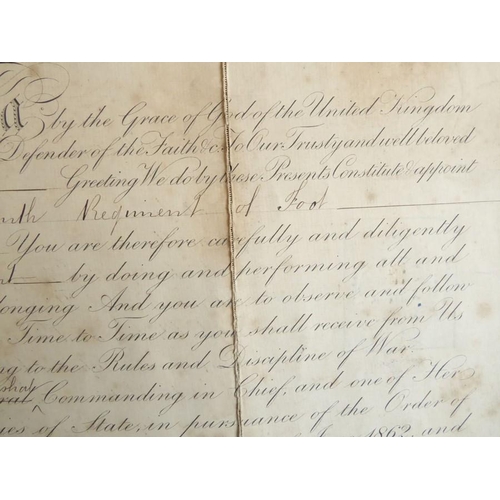 a by the Grace of God of the United Kingdom
Defender of the Faith &c. To Our Trusty and well beloved
Greeting We do by these Presents Constitute & appoint
Regiment of Foot
You are therefore carefully and diligently
by doing and performing all and
longing And you are to observe and follow
Time to Time as you shall receive from Us
ng to the Rules and Discipline of War
shal
Commanding in Chief, and one of Her
es of State, in pursuance of the Order of
1862, and